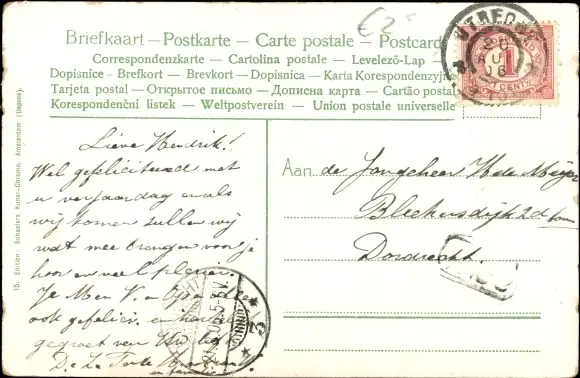 £2=
Briefkaart — Postkarte — Carte postale — Postcard
Correspondenzkarte — Cartolina postale — Levelező-Lap —
Dopisnice - Brefkort — Brevkort — Dopisnica — Karta Korespondenzyjna
Tarjeta postal — Открытое письмо — Дописна карта — Cartão postal
Korespondenční listek — Weltpostverein — Union postale universelle
UTRECHT
1
CENT
Lieve Hendrik!
Wel gefeliciteerd met
u verjaardag en als
wij komen zullen wij
wat mee brengen voor je
hoor en veel plezier.
Je M en V. en
ook gefelici. en
gegroet van
De
Aan de Jongeheer H de Meijer
Bleekersdijk 2d
Dordrecht.
15. Edition: Schaefers Kunst-Chromo, Amsterdam (Depose).